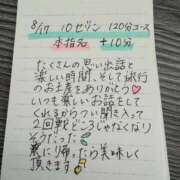 8/17 10ゼリン 120分コース
本指名 +10分
たくさんの思い出話と
楽しい時間、そして旅行
のお土産をありがとう
いつも楽しいお話をして
くれるからつい聞き入って
2回戦どころじゃなくなり
そうだった
家に帰ったら美味しく
頂きます